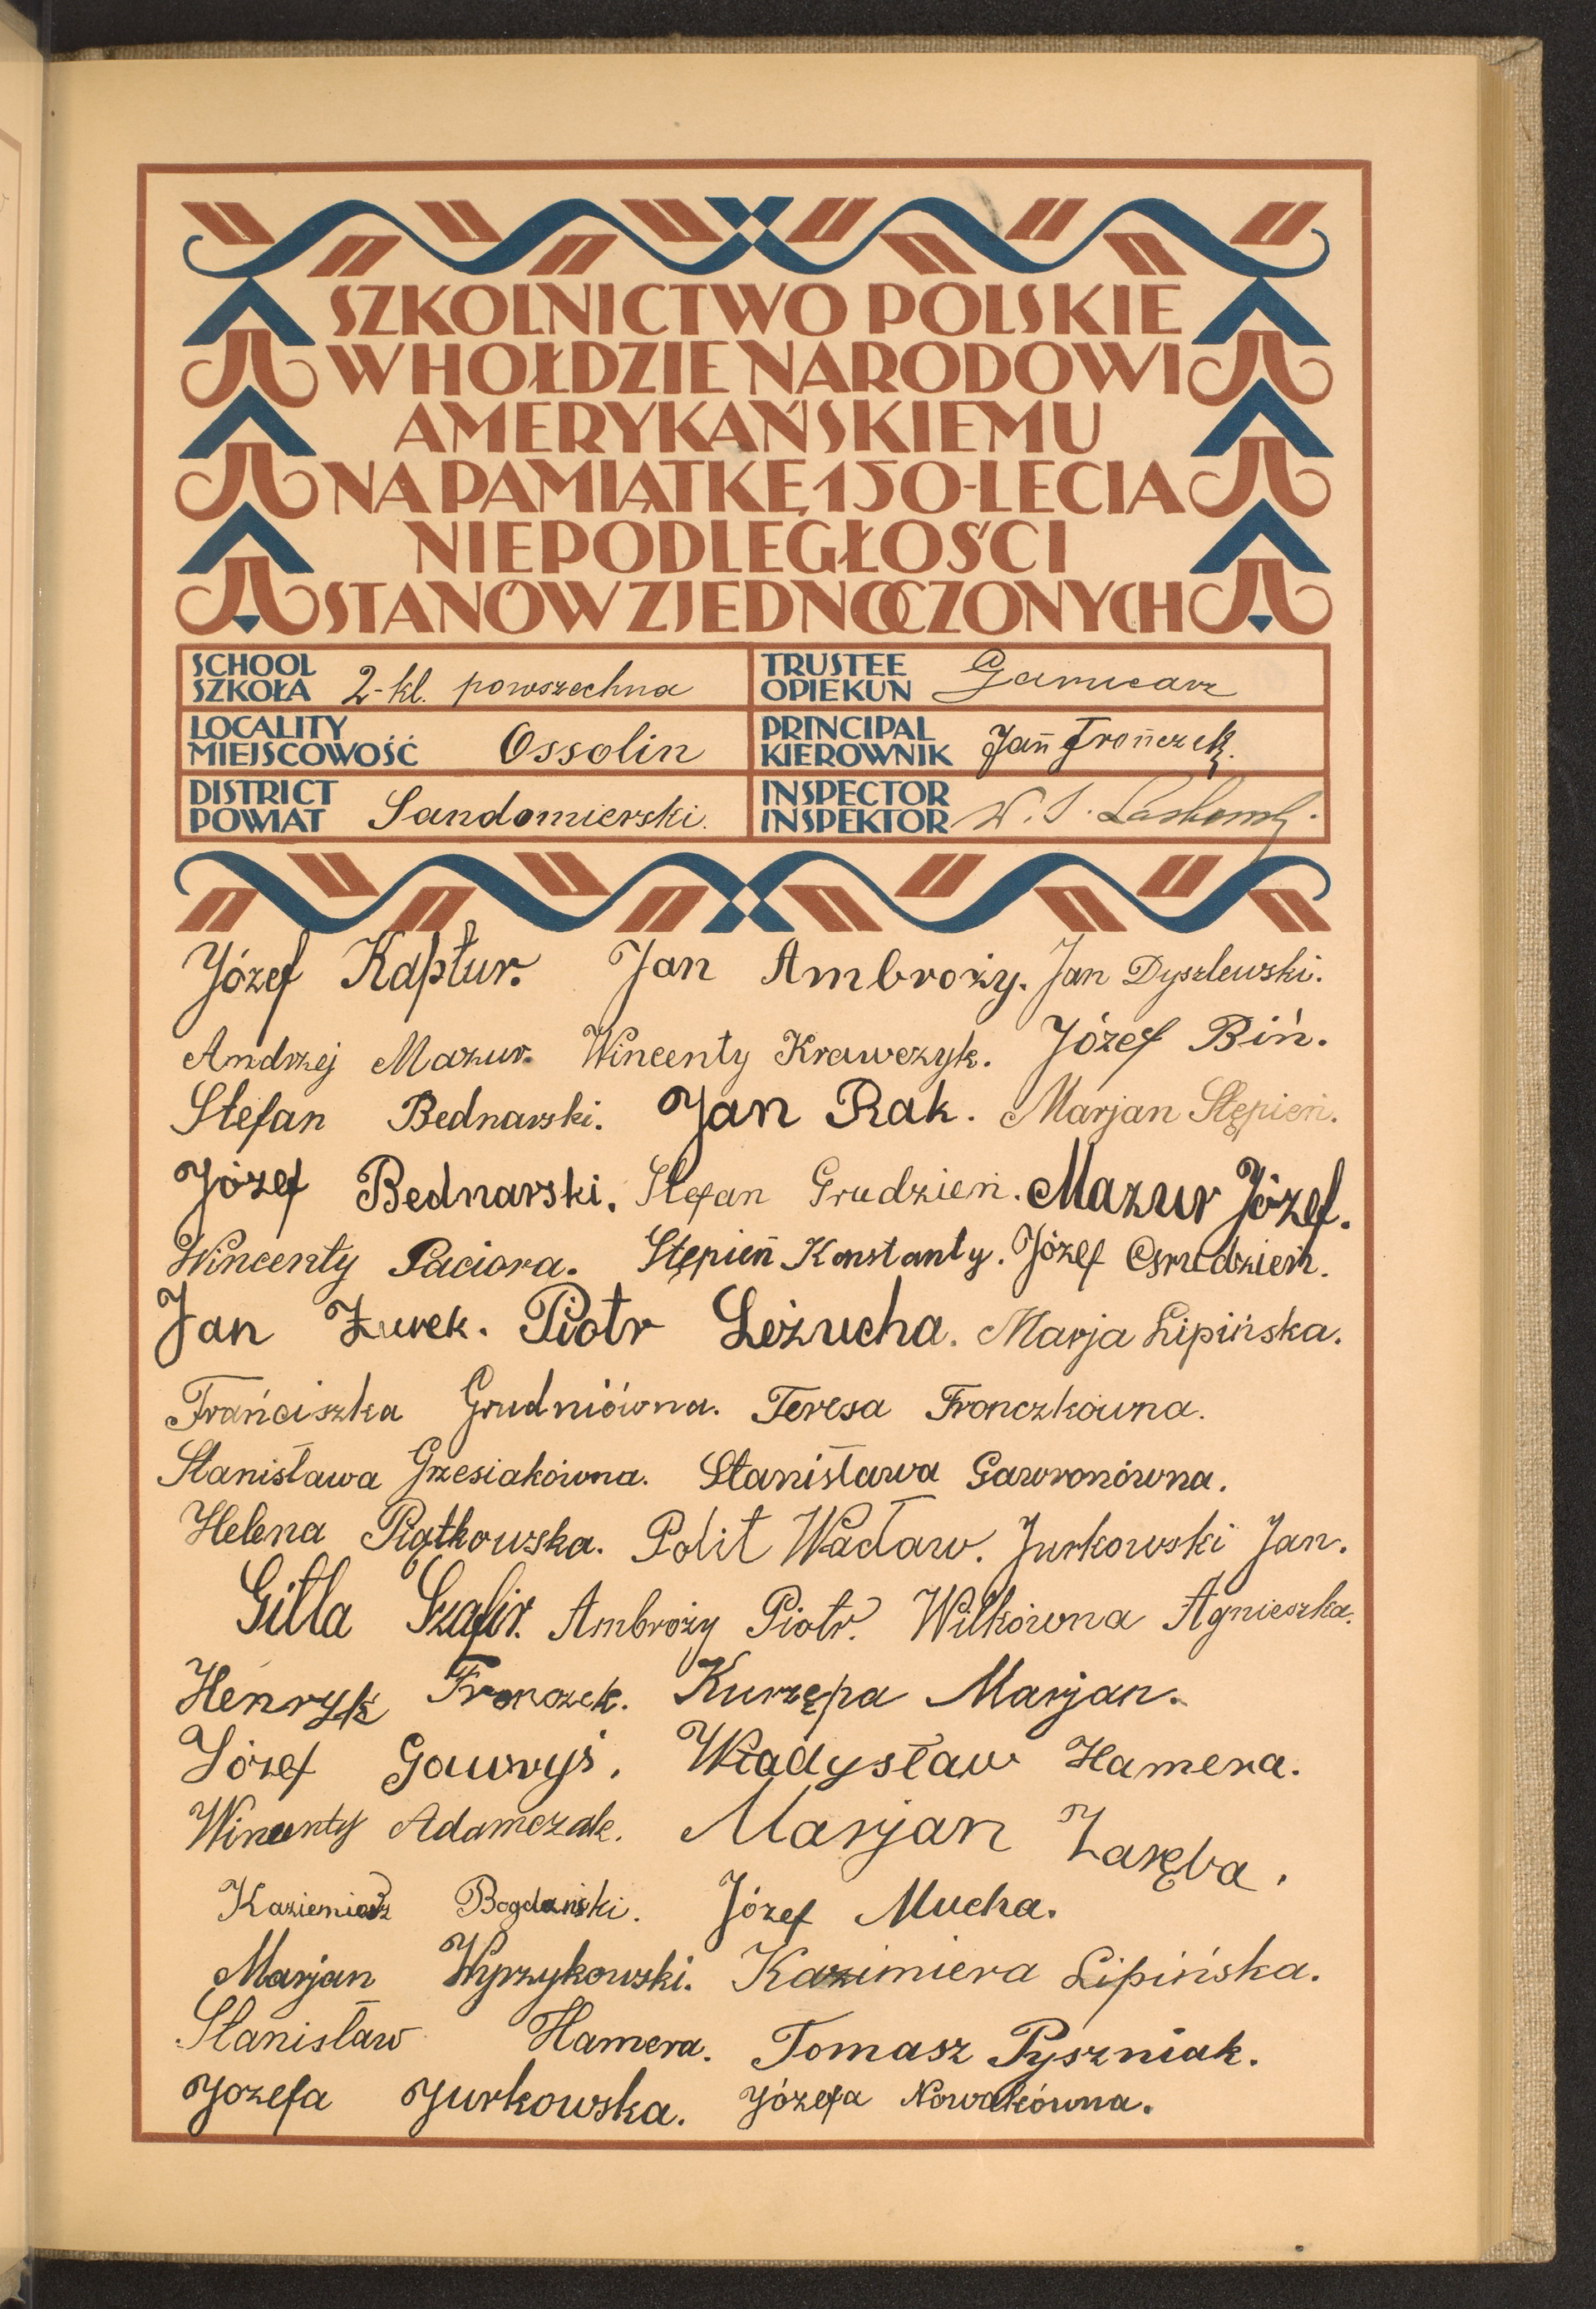 SZKOLNICTWO POLSKIE
W HOŁDZIE NARODOWI
AMERYKAŃSKIEMU
NA PAMIĄTKĘ 150-LECIA
NIEPODLEGŁOŚCI
STANÓW ZJEDNOCZONYCH
SCHOOL
SZKOŁA 2-kl. powszechna
TRUSTEE
OPIEKUN
LOCALITY
MIEJSCOWOŚĆ Ossolin
PRINCIPAL
KIEROWNIK Jan Fronczek.
DISTRICT
POWIAT Sandomierski.
INSPECTOR
INSPEKTOR
Józef Kaptur. Jan Ambroży. Jan Dyszlewski.
Andrzej Mazur. Wincenty Krawczyk. Józef Biń.
Stefan Bednarski. Jan Rak. Marjan Stępień.
Józef Bednarski. Stefan Grudzień. Mazur Józef.
Wincenty Paciora. Stępień Konstanty. Józef Grudzień.
Jan Żurek. Piotr Leżucha. Marja Lipińska.
Frańciszka Grudniówna. Teresa Fronczkówna.
Stanisława Grzesiakówna. Stanisława Gawronówna.
Helena Piątkowska. Polit Wacław. Jurkowski Jan.
Gitla Szafir. Ambroży Piotr. Wilkówna Agnieszka.
Henryk Fronczek. Kurzępa Marjan.
Józef Gawryś. Władysław Hamera.
Wincenty Adamczak. Marjan Zaręba.
Kazimierz Bogdański. Józef Mucha.
Marjan Wyrzykowski. Kazimiera Lipińska.
Stanisław Hamera. Tomasz Pyszniak.
Józefa Jurkowska. Józefa Nowakówna.